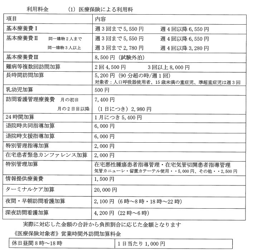 利用料金 (1) 医療保険による利用料
項目 内容
基本療養費Ⅰ 週3回まで5,550円 週4回以降6,550円
基本療養費Ⅱ 同一建物2人まで 週3回まで5,550円 週4回以降6,550円
同一建物3人以上 週3回まで2,780円 週4回以降3,280円
基本療養費Ⅲ 8,500円(試験外泊)
難病等複数回訪問加算 2回4,500円 3回以上8,000円
長時間訪問加算 5,200円(90分超の時/週1回)
対象者:人口呼吸器使用者、15歳未満の重症児、
乳幼児加算 500円
訪問看護管理療養費 月の初日 7,400円
月の2日目以降 (1日につき)2,980円
24時間加算 1月につき5,400円
退院時共同指導加算 6,000円
退院時支援指導加算 6,000円
特別管理指導加算 2,000円
在宅患者緊急カンファレンス加算 2,000円
特別管理加算 在宅悪性腫瘍患者指導管理・在宅気管切開患者指導管理
気管カニューレ・留置カテーテル使用・・5,000円、その他・・2,500円
情報提供療養費 1,500円
ターミナルケア加算 20,000円
夜間・早朝訪問看護加算 2,100円(6時~8時・18時~22時)
深夜訪問看護加算 4,200円(22時~6時)
実際に対応した金額の合計から負担割合に応じた金額となります
《医療保険対象者》営業時間外訪問加算料金
休日昼間8時~18時 1日当たり1,000円